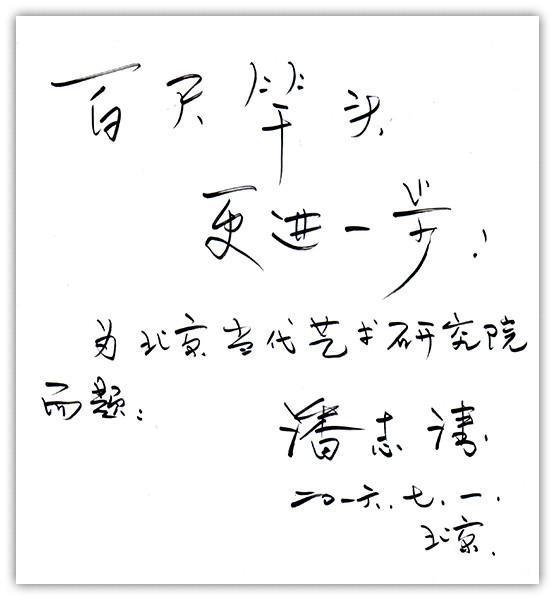 百尺竿头
更进一步！
为北京当代艺术研究院
而题：
潘志涛
二〇一六.七.一.
北京.